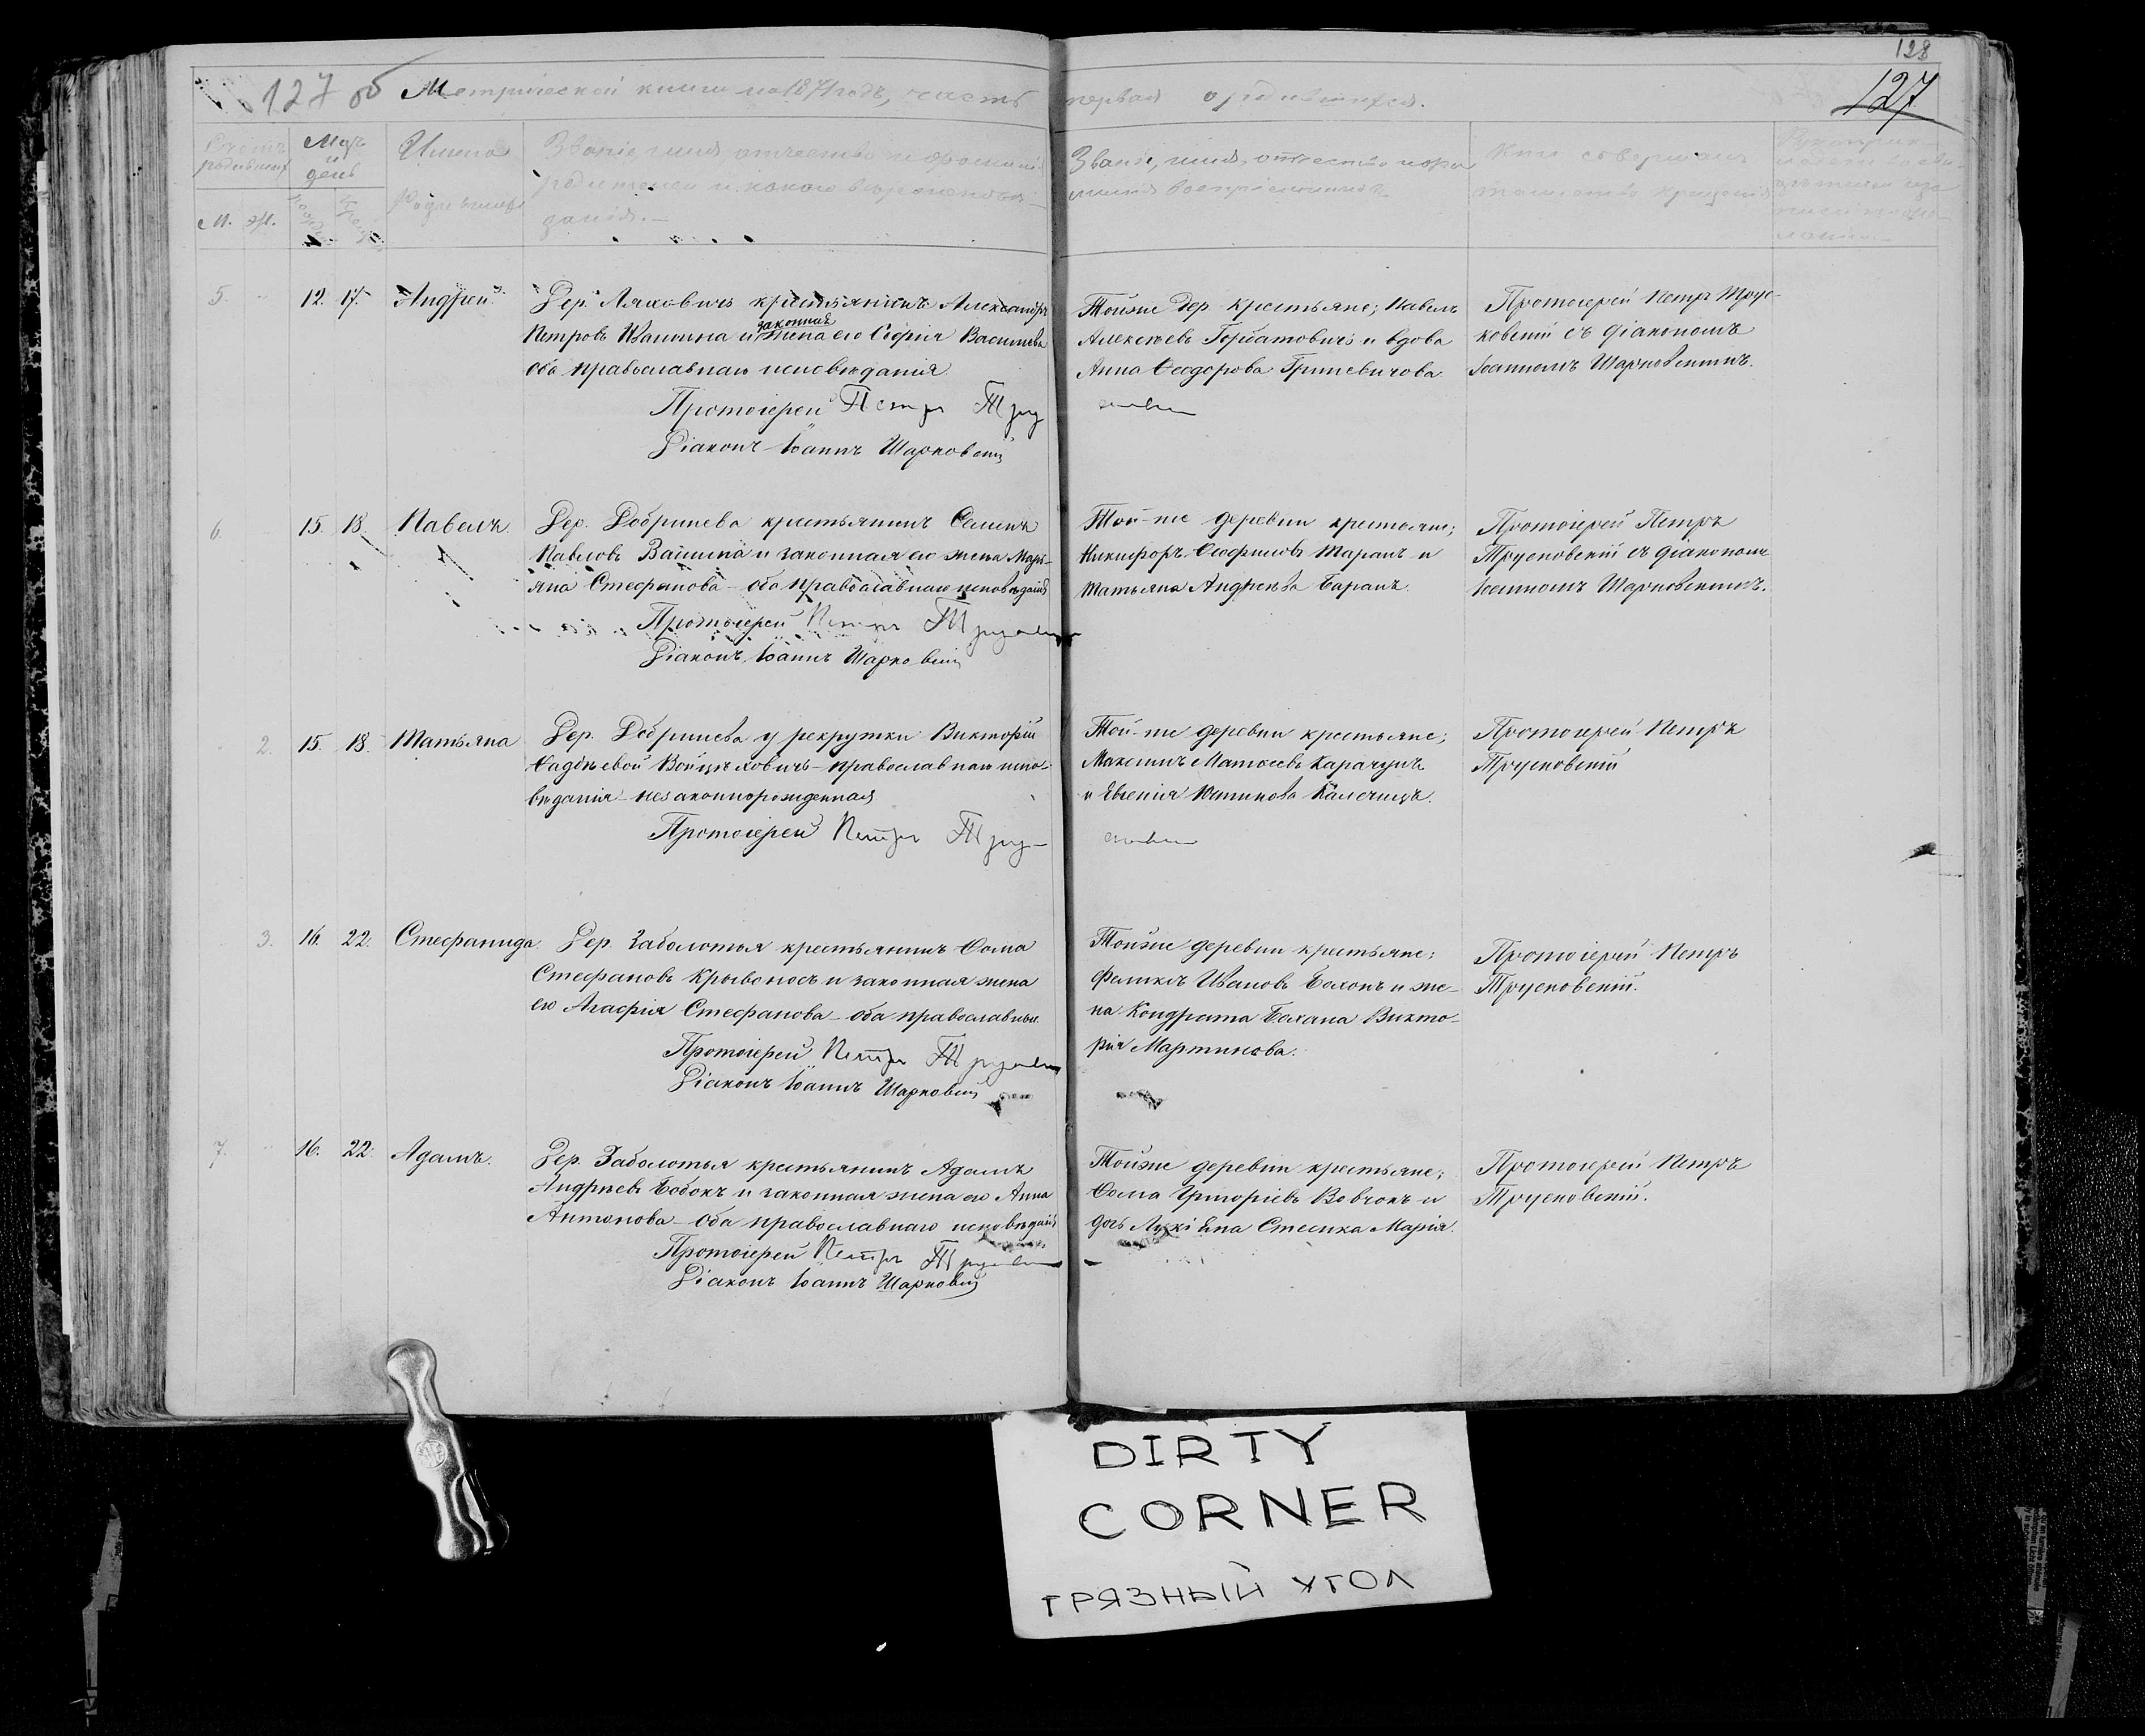 128
127 об Метрической книги на 1871 годъ, часть первая о родившихся.
127
Счетъ родившихся
М. ж.
Мсц. и день
рожденія
крещенія
Имена родившихся
Званіе, имя отчество и фамилія
родителей и какого вѣроисповѣ-
данія.—
Званіе, имя, отчество и фа-
милія воспріемниковъ
Кто совершалъ
таинство крещенія
5 12. 17. Андрей.
Дер. Ляховичъ крестьянинъ Александръ
Петровъ и законная жена его Софія Васильева
оба православнаго исповѣданія.
Протоіерей Петръ Трусковскій
Діаконъ Іоаннъ Шарковскій
Тойже дер. крестьяне; Павелъ
Алексѣевъ Горбатовичъ и вдова
Анна Ѳеодорова Гриневичова
Протоіерей Петръ Трус-
ковскій съ діакономъ
Іоанномъ Шарковскимъ.
6. 15. 18. Павелъ.
Дер. Добринева крестьянинъ Семенъ
Павловъ и законная его жена Марь-
яна Стефанова — оба православнаго исповѣданія
Протоіерей Петръ Трусковскій
Діаконъ Іоаннъ Шарковскій
Той-же деревни крестьяне;
Никифоръ Ѳеофиловъ Таранъ и
Татьяна Андреева Баранъ.
Протоіерей Петръ
Трусковскій съ діакономъ
Іоанномъ Шарковскимъ.
2. 15. 18. Татьяна
Дер. Добринева у рекрутки Викторіи
Ѳадѣевой Войцѣховичъ — православнаго испо-
вѣданія — незаконнорожденная
Протоіерей Петръ Трусковскій
Той-же деревни крестьяне;
Максимъ Матѳеевъ Карачунъ
и Евгенія Калечицъ.
Протоіерей Петръ
Трусковскій
3. 16. 22. Стефанида.
Дер. Заболотья крестьянинъ Ѳома
Стефановъ Крывоносъ и законная жена
его Агафія Стефанова — оба православные.
Протоіерей Петръ Трусковскій
Діаконъ Іоаннъ Шарковскій
Тойже деревни крестьяне;
Феликсъ Ивановъ Боханъ и же-
на Кондрата Бохана Викто-
рія Мартинова.
Протоіерей Петръ
Трусковскій.
7. 16. 22. Адамъ.
Дер. Заболотья крестьянинъ Адамъ
Андреевъ Бобокъ и законная жена его Анна
Антонова — оба православнаго исповѣданія
Протоіерей Петръ Трусковскій
Діаконъ Іоаннъ Шарковскій
Тойже деревни крестьяне;
Ѳома Григорьевъ Вовчокъ и
дочь Стецка Марія.
Протоіерей Петръ
Трусковскій.
DIRTY
CORNER
ГРЯЗНЫЙ УГОЛ